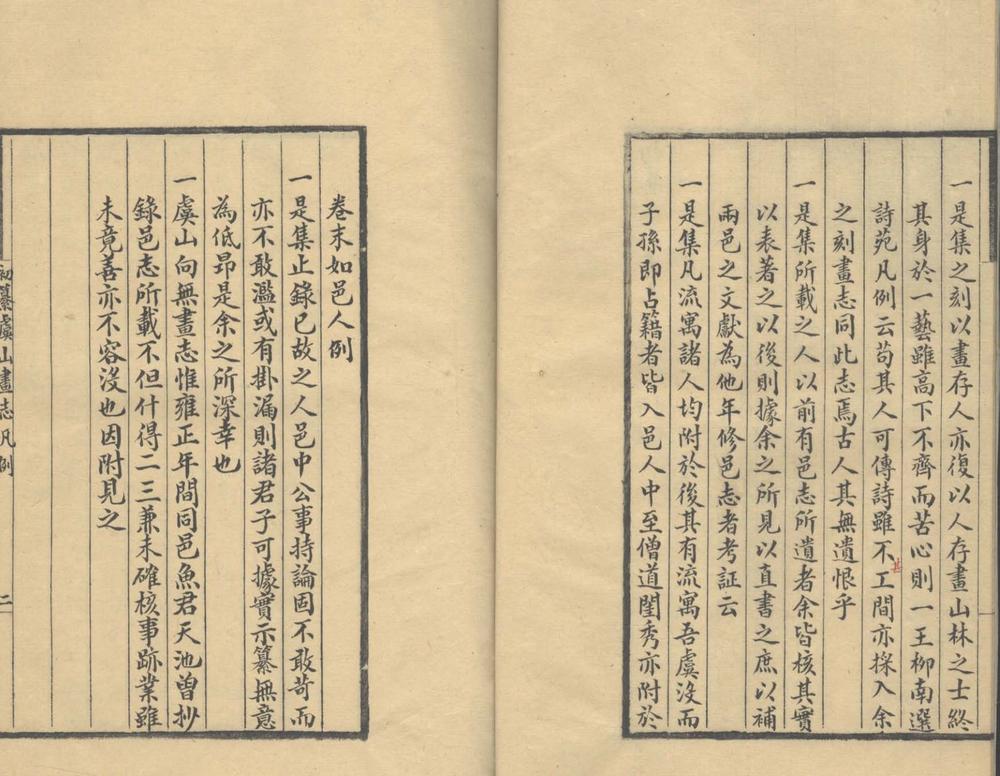 一是集之刻以畫存人亦復以人存畫山林之士終
其身於一藝雖高下不齊而苦心則一王柳南選
詩苑凡例云苟其人可傳詩雖不工間亦採入余
甚
之刻畫志同此志焉古人其無遺恨乎
一是集所載之人以前有邑志所遺者余皆核其實
以表著之以後則據余之所見以直書之庶以補
兩邑之文獻為他年修邑志者考証云
一是集凡流寓諸人均附於後其有流寓吾虞沒而
子孫即占籍者皆入邑人中至僧道閨秀亦附於
卷末如邑人例
一是集止錄已故之人邑中公事持論固不敢苛而
亦不敢濫或有掛漏則諸君子可據實示纂無意
為低昂是余之所深幸也
一虞山向無畫志惟雍正年間同邑魚君天池曾抄
錄邑志所載不但什得二三兼未確核事跡業雖
未竟善亦不容沒也因附見之
初纂虞山畫志凡例
二